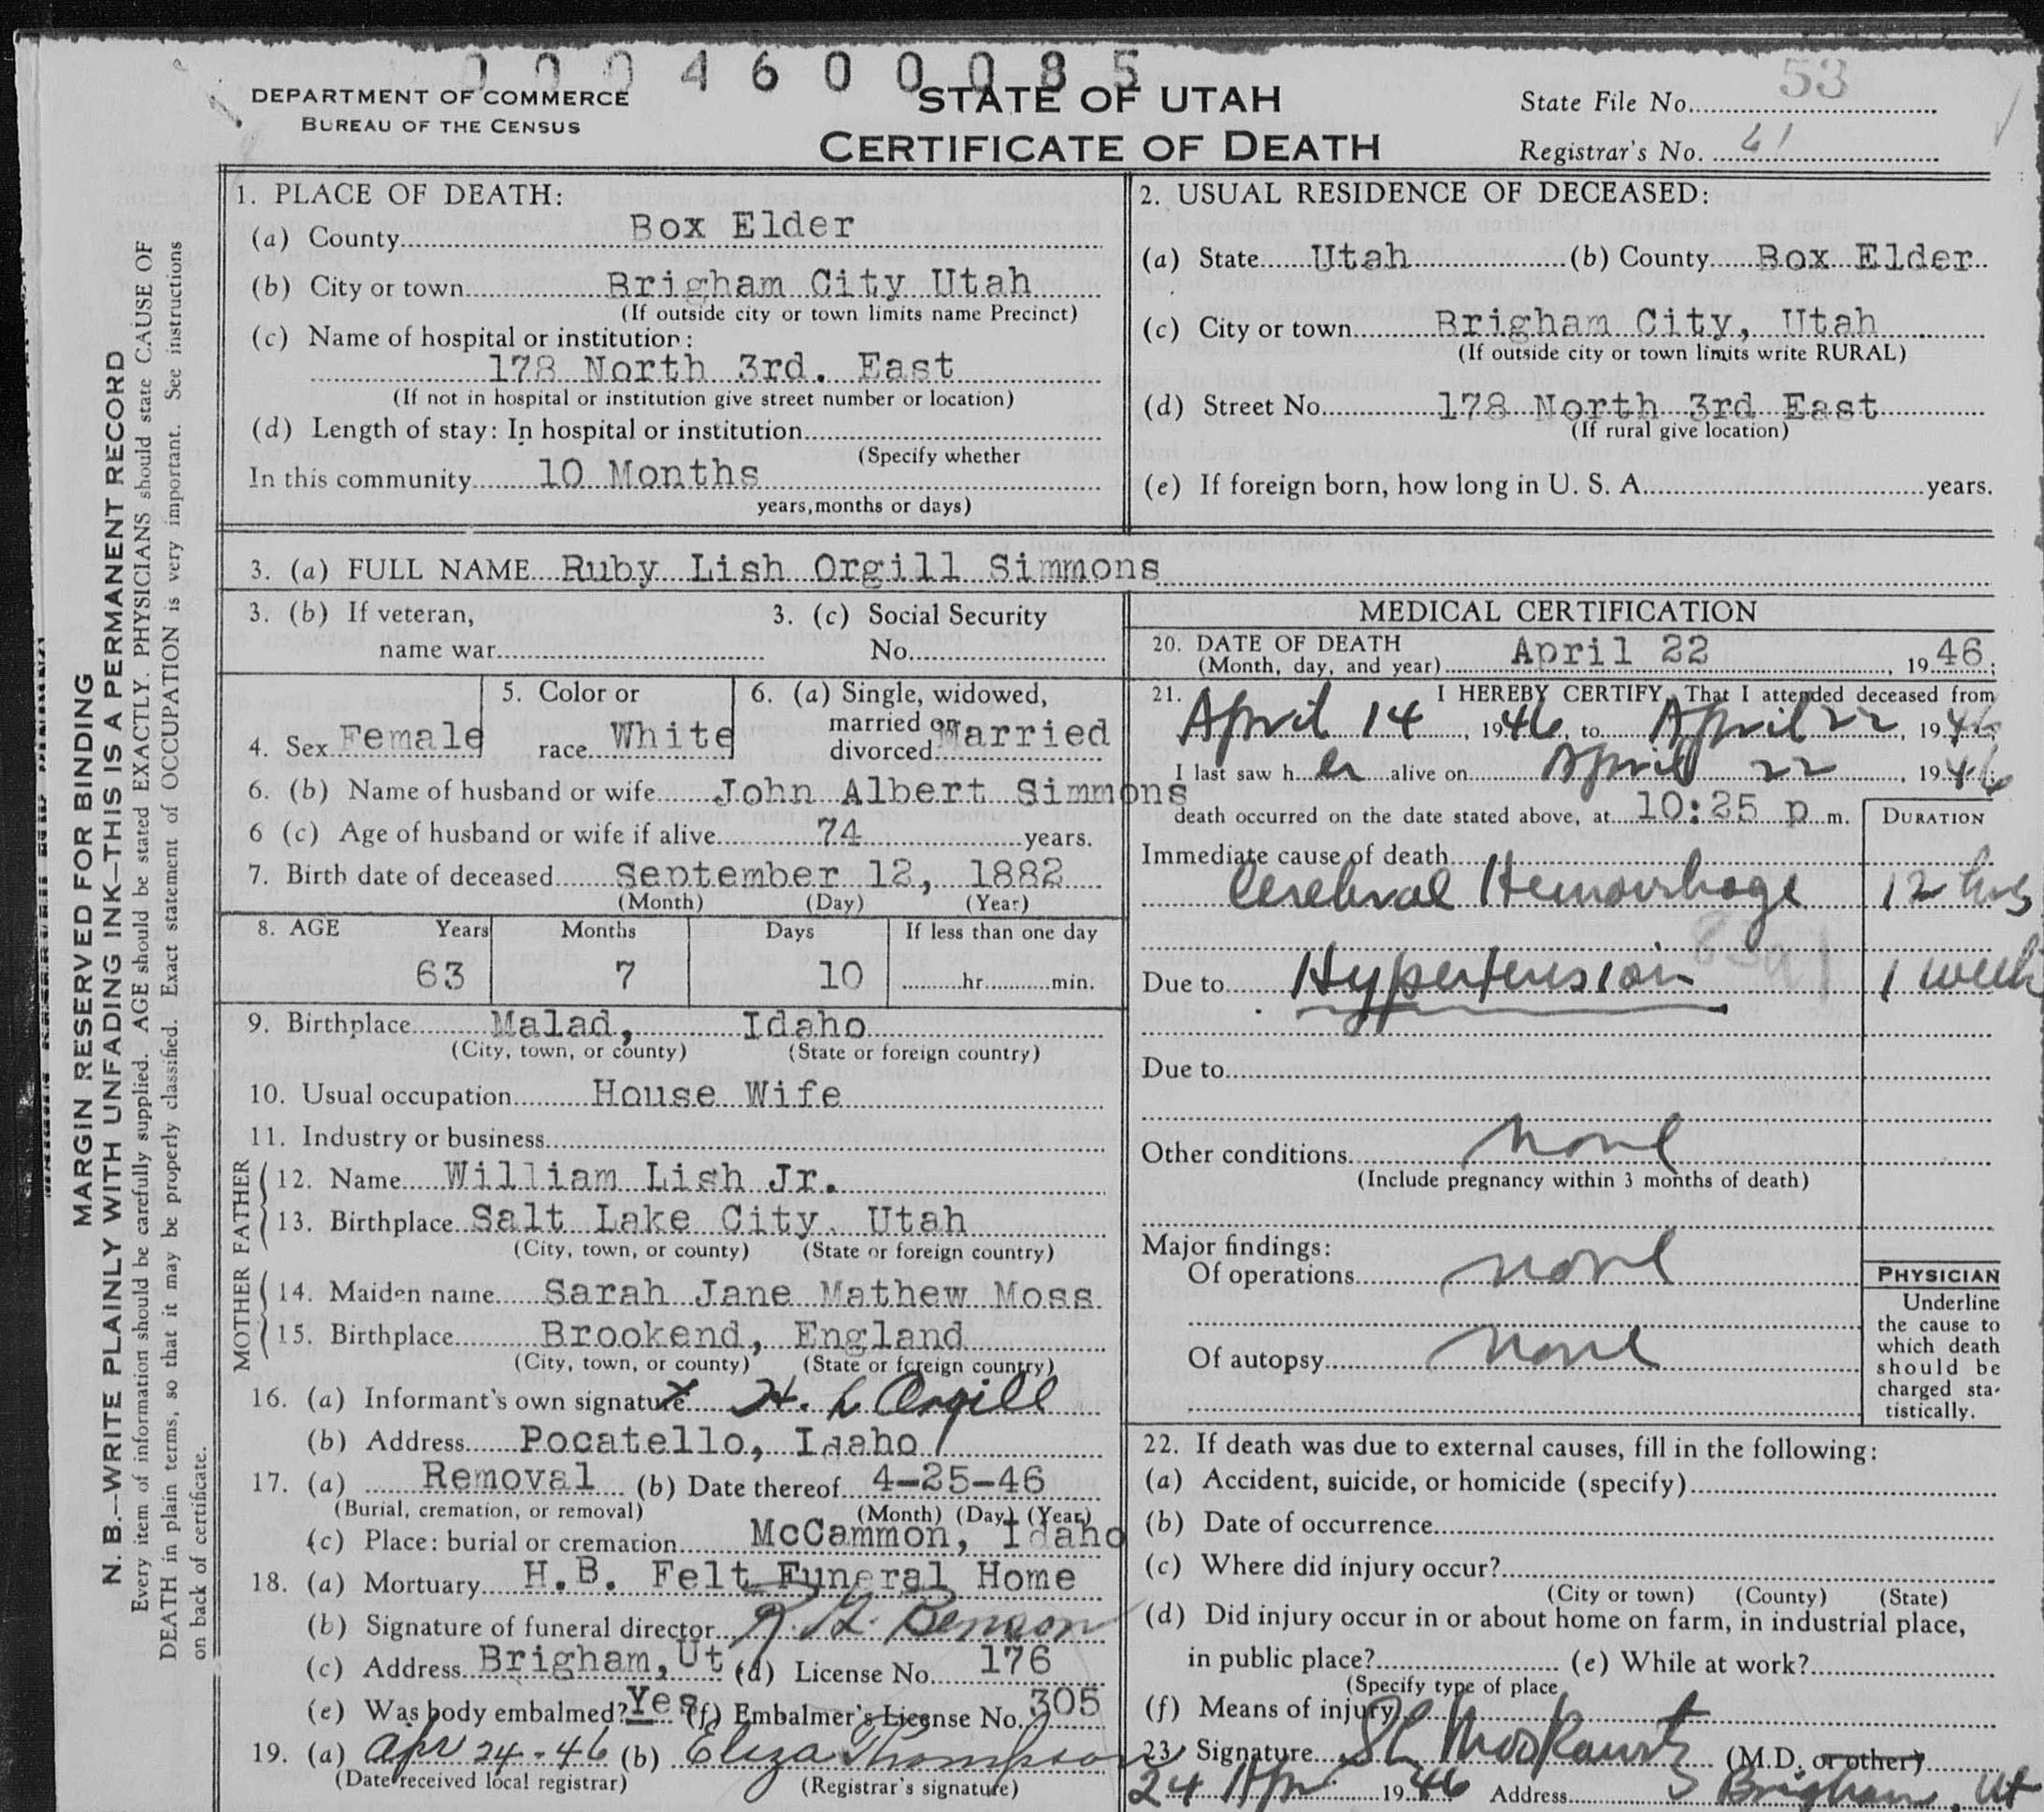 0 0 0 4 6 0 0 0 8 5
DEPARTMENT OF COMMERCE
BUREAU OF THE CENSUS
STATE OF UTAH
CERTIFICATE OF DEATH
State File No. 53
Registrar's No. 41
MARGIN RESERVED FOR BINDING
N. B.—WRITE PLAINLY WITH UNFADING INK—THIS IS A PERMANENT RECORD
Every item of information should be carefully supplied. AGE should be stated EXACTLY. PHYSICIANS should state CAUSE OF
DEATH in plain terms, so that it may be properly classified. Exact statement of OCCUPATION is very important. See instructions
on back of certificate.
1. PLACE OF DEATH:
(a) County Box Elder
(b) City or town Brigham City Utah
(If outside city or town limits name Precinct)
(c) Name of hospital or institution:
178 North 3rd. East
(If not in hospital or institution give street number or location)
(d) Length of stay: In hospital or institution
(Specify whether
In this community 10 Months
years, months or days)
2. USUAL RESIDENCE OF DECEASED:
(a) State Utah (b) County Box Elder
(c) City or town Brigham City, Utah
(If outside city or town limits write RURAL)
(d) Street No. 178 North 3rd East
(If rural give location)
(e) If foreign born, how long in U. S. A. years.
3. (a) FULL NAME Ruby Lish Orgill Simmons
3. (b) If veteran, 3. (c) Social Security
name war No.
4. Sex Female
5. Color or
race White
6. (a) Single, widowed,
married or
divorced Married
6. (b) Name of husband or wife John Albert Simmons
6 (c) Age of husband or wife if alive 74 years.
7. Birth date of deceased September 12, 1882
(Month) (Day) (Year)
8. AGE Years Months Days If less than one day
63 7 10 hr. min.
9. Birthplace Malad, Idaho
(City, town, or county) (State or foreign country)
10. Usual occupation House Wife
11. Industry or business
FATHER
12. Name William Lish Jr.
13. Birthplace Salt Lake City, Utah
(City, town, or county) (State or foreign country)
MOTHER
14. Maiden name Sarah Jane Mathew Moss
15. Birthplace Brookend, England
(City, town, or county) (State or foreign country)
16. (a) Informant's own signature x H. L Orgill
(b) Address Pocatello, Idaho
17. (a) Removal (b) Date thereof 4-25-46
(Burial, cremation, or removal) (Month) (Day) (Year)
(c) Place: burial or cremation McCammon, Idaho
18. (a) Mortuary H.B. Felt Funeral Home
(b) Signature of funeral director Benson
(c) Address Brigham, Ut (d) License No. 176
(e) Was body embalmed? Yes (f) Embalmer's License No. 305
19. (a) Apr 24-46 (b) Eliza Thompson
(Date received local registrar) (Registrar's signature)
MEDICAL CERTIFICATION
20. DATE OF DEATH
(Month, day, and year) April 22, 1946;
21. I HEREBY CERTIFY, That I attended deceased from
April 14, 1946, to April 22, 1946;
I last saw her alive on April 22, 1946;
death occurred on the date stated above, at 10:25 p m.
DURATION
Immediate cause of death
Cerebral Hemorrhage 12 hrs
83a
Due to Hypertension 1 week
Due to
Other conditions none
(Include pregnancy within 3 months of death)
Major findings:
Of operations none
Of autopsy none
PHYSICIAN
Underline
the cause to
which death
should be
charged sta-
tistically.
22. If death was due to external causes, fill in the following:
(a) Accident, suicide, or homicide (specify)
(b) Date of occurrence
(c) Where did injury occur?
(City or town) (County) (State)
(d) Did injury occur in or about home on farm, in industrial place,
in public place? (e) While at work?
(Specify type of place
(f) Means of injury
23. Signature (M.D. or other)
24 Apr 1946 Address Brigham, Ut